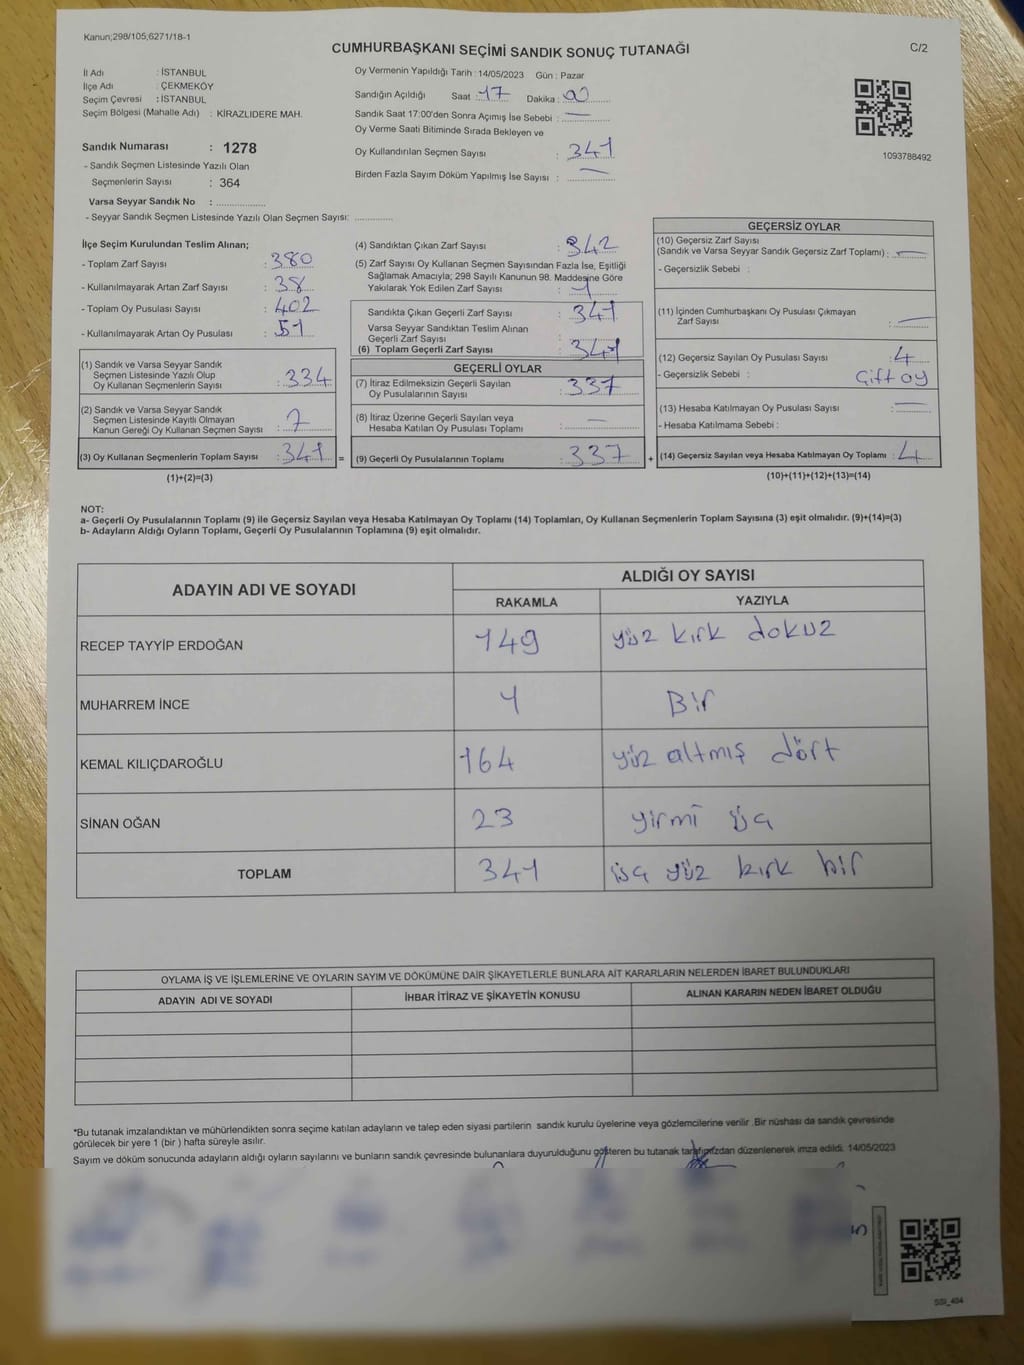 Kanun;298/105,6271/18-1
CUMHURBAŞKANI SEÇİMİ SANDIK SONUÇ TUTANAĞI
C/2
İl Adı : İSTANBUL
İlçe Adı : ÇEKMEKÖY
Seçim Çevresi : İSTANBUL
Seçim Bölgesi (Mahalle Adı) : KİRAZLIDERE MAH.
Sandık Numarası : 1278
- Sandık Seçmen Listesinde Yazılı Olan
Seçmenlerin Sayısı : 364
Varsa Seyyar Sandık No :
- Seyyar Sandık Seçmen Listesinde Yazılı Olan Seçmen Sayısı:
Oy Vermenin Yapıldığı Tarih : 14/05/2023 Gün : Pazar
Sandığın Açıldığı Saat : 17 Dakika : 00
Sandık Saat 17:00'den Sonra Açımış İse Sebebi : —
Oy Verme Saati Bitiminde Sırada Bekleyen ve
Oy Kullandırılan Seçmen Sayısı : 341
Birden Fazla Sayım Döküm Yapılmış İse Sayısı : —
1093788492
İlçe Seçim Kurulundan Teslim Alınan;
- Toplam Zarf Sayısı : 380
- Kullanılmayarak Artan Zarf Sayısı : 38
- Toplam Oy Pusulası Sayısı : 402
- Kullanılmayarak Artan Oy Pusulası : 51
(1) Sandık ve Varsa Seyyar Sandık
Seçmen Listesinde Yazılı Olup
Oy Kullanan Seçmenlerin Sayısı : 334
(2) Sandık ve Varsa Seyyar Sandık
Seçmen Listesinde Kayıtlı Olmayan
Kanun Gereği Oy Kullanan Seçmen Sayısı : 7
(3) Oy Kullanan Seçmenlerin Toplam Sayısı : 341 =
(1)+(2)=(3)
(4) Sandıktan Çıkan Zarf Sayısı : 342
(5) Zarf Sayısı Oy Kullanan Seçmen Sayısından Fazla İse, Eşitliği
Sağlamak Amacıyla; 298 Sayılı Kanunun 98. Maddesine Göre
Yakılarak Yok Edilen Zarf Sayısı : 1
Sandıkta Çıkan Geçerli Zarf Sayısı : 341
Varsa Seyyar Sandıktan Teslim Alınan
Geçerli Zarf Sayısı :
(6) Toplam Geçerli Zarf Sayısı : 341
GEÇERLİ OYLAR
(7) İtiraz Edilmeksizin Geçerli Sayılan
Oy Pusulalarının Sayısı : 337
(8) İtiraz Üzerine Geçerli Sayılan veya
Hesaba Katılan Oy Pusulası Toplamı : —
(9) Geçerli Oy Pusulalarının Toplamı : 337 +
GEÇERSİZ OYLAR
(10) Geçersiz Zarf Sayısı
(Sandık ve Varsa Seyyar Sandık Geçersiz Zarf Toplamı) : —
- Geçersizlik Sebebi :
(11) İçinden Cumhurbaşkanı Oy Pusulası Çıkmayan
Zarf Sayısı : —
(12) Geçersiz Sayılan Oy Pusulası Sayısı : 4
- Geçersizlik Sebebi : Çift oy
(13) Hesaba Katılmayan Oy Pusulası Sayısı : —
- Hesaba Katılmama Sebebi :
(14) Geçersiz Sayılan veya Hesaba Katılmayan Oy Toplamı : 4
(10)+(11)+(12)+(13)=(14)
NOT:
a- Geçerli Oy Pusulalarının Toplamı (9) ile Geçersiz Sayılan veya Hesaba Katılmayan Oy Toplamı (14) Toplamları, Oy Kullanan Seçmenlerin Toplam Sayısına (3) eşit olmalıdır. (9)+(14)=(3)
b- Adayların Aldığı Oyların Toplamı, Geçerli Oy Pusulalarının Toplamına (9) eşit olmalıdır.
ADAYIN ADI VE SOYADI
ALDIĞI OY SAYISI
RAKAMLA YAZIYLA
RECEP TAYYİP ERDOĞAN 149 yüz kırk dokuz
MUHARREM İNCE 1 Bir
KEMAL KILIÇDAROĞLU 164 yüz altmış dört
SİNAN OĞAN 23 yirmi üç
TOPLAM 341 üç yüz kırk bir
OYLAMA İŞ VE İŞLEMLERİNE VE OYLARIN SAYIM VE DÖKÜMÜNE DAİR ŞİKAYETLERLE BUNLARA AİT KARARLARIN NELERDEN İBARET BULUNDUKLARI
ADAYIN ADI VE SOYADI İHBAR İTİRAZ VE ŞİKAYETİN KONUSU ALINAN KARARIN NEDEN İBARET OLDUĞU
*Bu tutanak imzalandıktan ve mühürlendikten sonra seçime katılan adayların ve talep eden siyasi partilerin sandık kurulu üyelerine veya gözlemcilerine verilir. Bir nüshası da sandık çevresinde
görülecek bir yere 1 (bir ) hafta süreyle asılır.
Sayım ve döküm sonucunda adayların aldığı oyların sayılarını ve bunların sandık çevresinde bulunanlara duyurulduğunu gösteren bu tutanak tarafımızdan düzenlenerek imza edildi. 14/05/2023
SSI_404